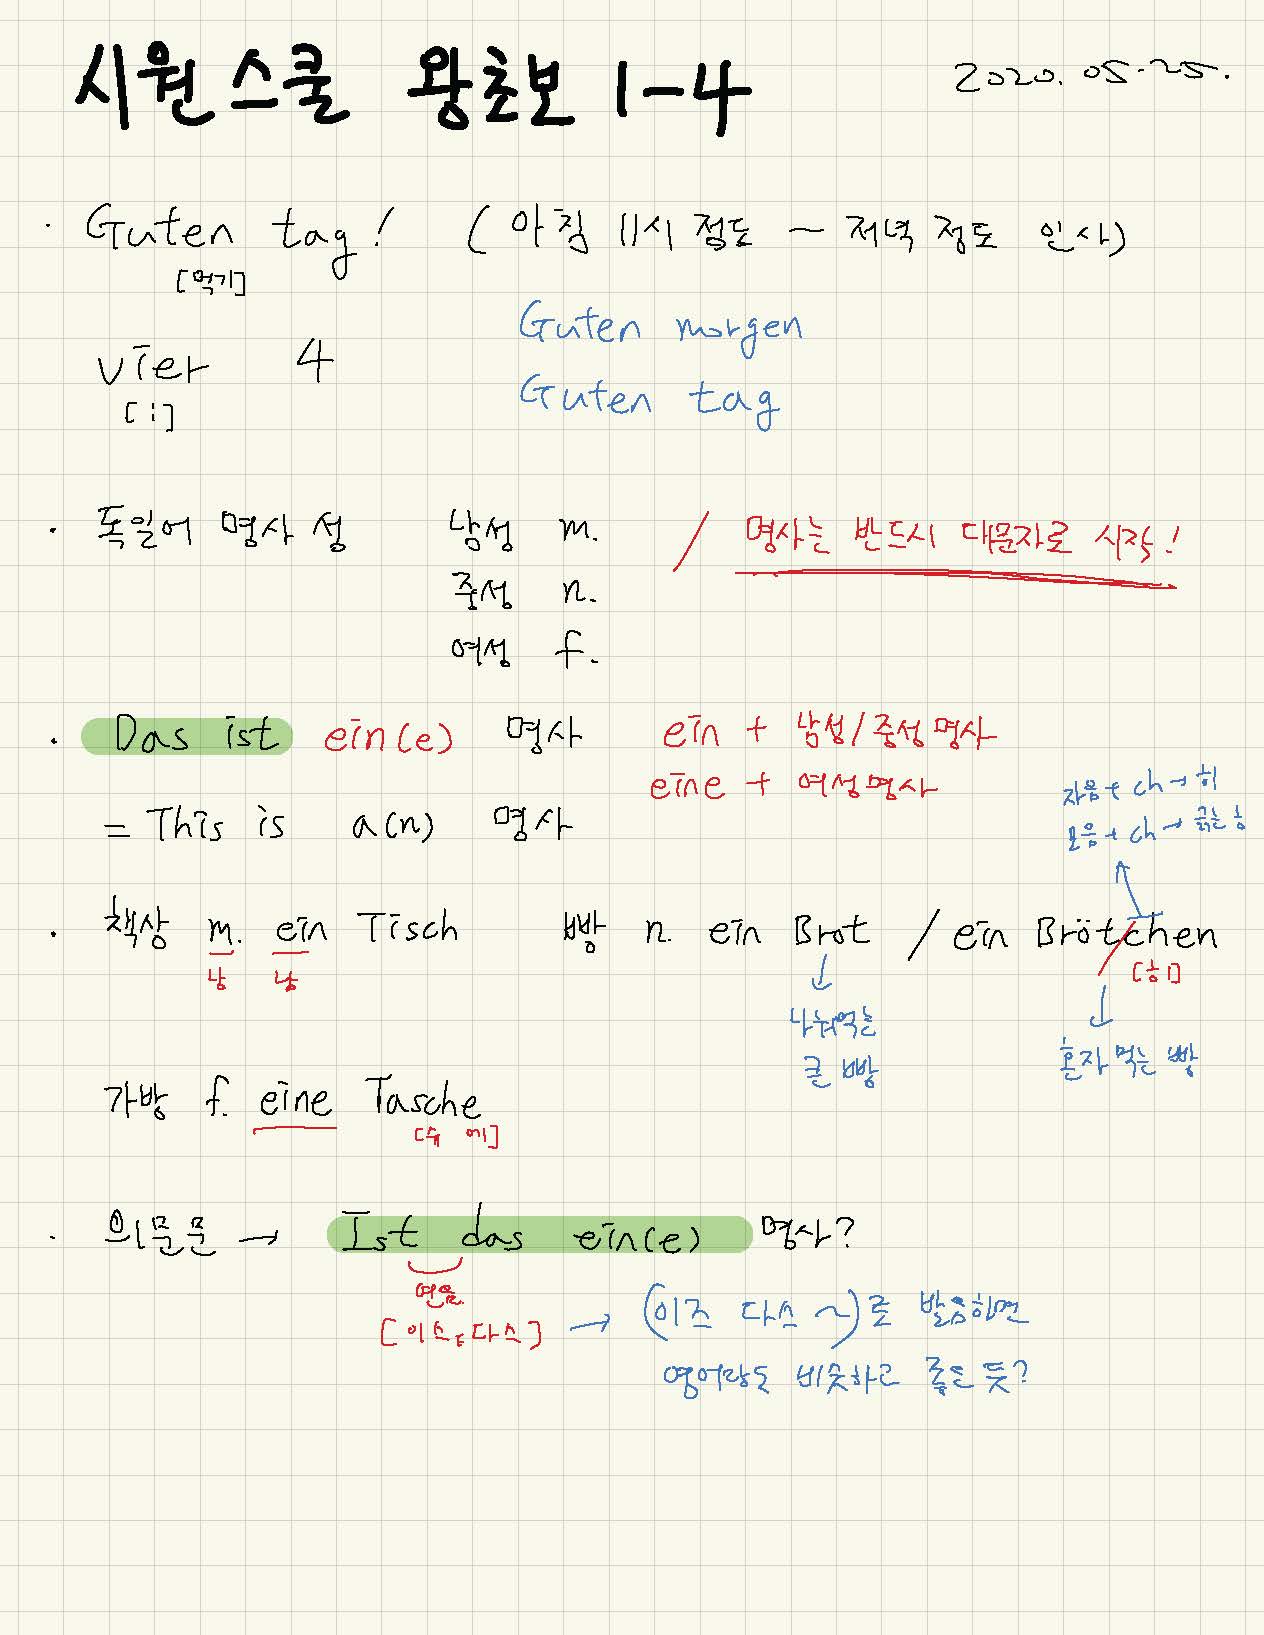 시원스쿨 왕초보 1-4
2020.05.25.
· Guten tag! (아침 11시 정도 ~ 저녁 정도 인사)
[먹기]
Guten morgen
vier 4
[ㅣ:]
Guten tag
· 독일어 명사 성 남성 m. / 명사는 반드시 대문자로 시작!
중성 n.
여성 f.
· Das ist ein(e) 명사 ein + 남성/중성명사
eine + 여성명사
= This is a(n) 명사
자음 + ch → 히
모음 + ch → 긁는 흐
· 책상 m. ein Tisch 빵 n. ein Brot / ein Brötchen
남 남
[히]
나눠먹는
큰 빵
혼자 먹는 빵
가방 f. eine Tasche
[슈 에]
· 의문문 → Ist das ein(e) 명사?
연음
[이스트다스] → (이즈 다스 ~)로 발음하면
영어랑도 비슷하고 좋은 듯?